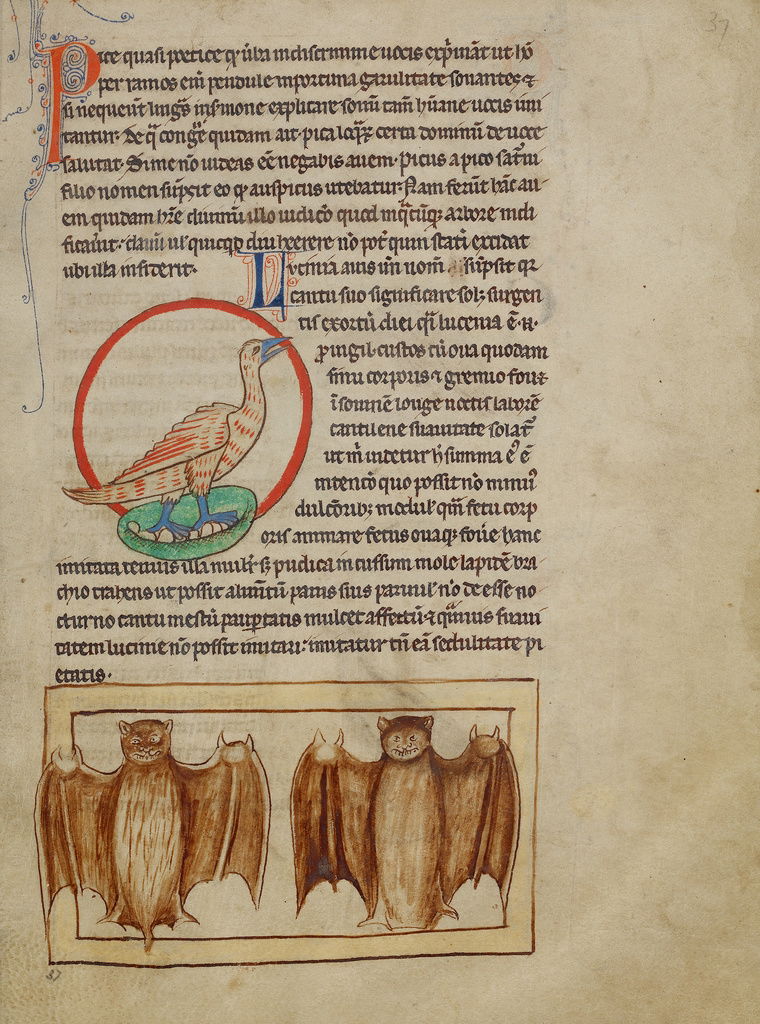 37
Pice quasi poetice qr̄ ūba in discrimine uocis exp̄māt ut hō
per ramos eī pendule inportuna garulitate sonantes ⁊
si nequeūt lingis in sermone explicare sonū tam̄ hūane uocis imi
tantur· De q̄ congr̄e quidam ait· pica loq̄x certa dominū de uoce
saluta· Si me nō uideas eē negabis auem· Picus a pico sat̄ni
filio nomen sūpsit eo qr̄ auspiciis utebatur· Nam ferūt hāc au
em quidam hr̄e diuinū illo iudicō quod in q̄cūq; arbore nidi
ficauit· clauū ul̄ quicq̄d diu herere nō pot̄ quin statī excidat
ubi illa insiderit·
Lucinia auis inn nom̄ sūpsit qr̄
cantu suo significare sol; surgen
tis exortū diei q̄si lucenia ē· H·
p̄uigil custos cū oua quodam
sinu corporis ⁊ gremio fouet
īsomnē longe noctis laborē
cantilene suauitate solat̄
ut m̄ uidetur h̄ summa ei' ē
intencō quo possit nō minus
dulcōrib; modul̄ q̄m fetu corp
oris animare fetus ouaq; foue hanc
imitata tenuis illa muli̅r· s; pudica in cussum mole lapidē bra
chio trahens ut possit alim̄tū panis suis paruul̄ nō de esse no
cturno cantu mestū paup̄tatis mulcet affectū ⁊ q̄muis suaui
tatem lucinie nō possit imitari· imitatur tn̄ eā sedulitate pi
etatis·
37